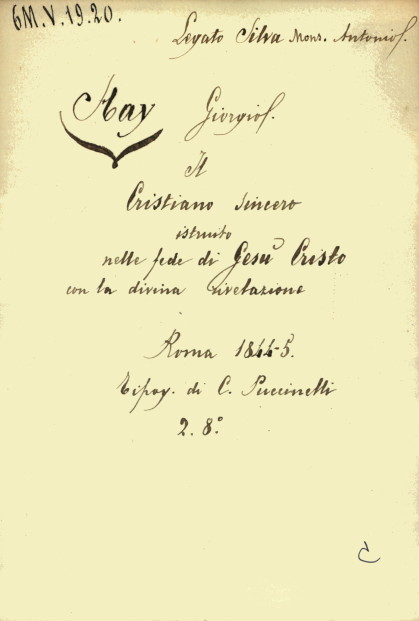 6M.V.19.20.
Legato Silva Mons. Antonio
Hay Giorgio
Il
Cristiano sincero
istruito
nelle fede di Gesù Cristo
con la divina rivelazione
Roma 1844-5.
Tipog. di C. Puccinelli
2. 8.°